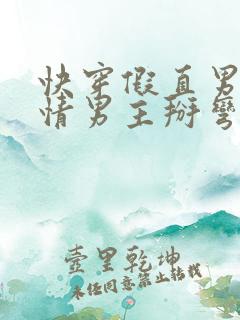 快穿假直男
情男主掰彎
壹里乾坤
未经同意禁止转载